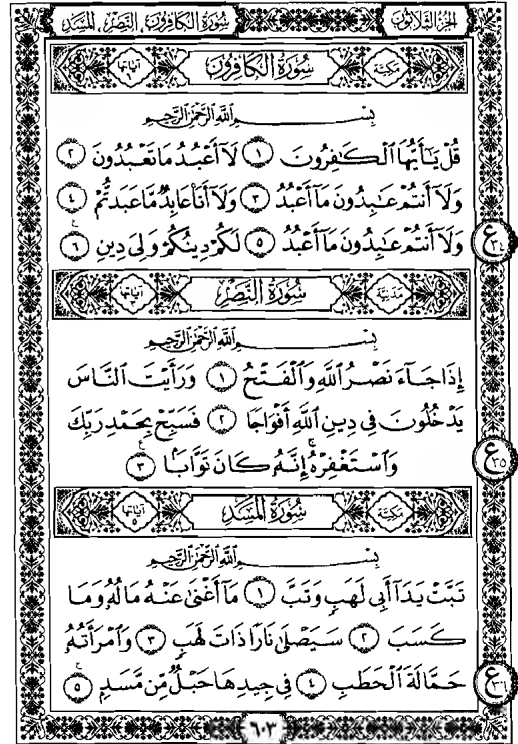 الجزء الثلاثون
سورة الكافرون، النصر، المسد
مكية سُورَةُ الكَافِرُونَ آياتها
بِسْمِ ٱللَّهِ ٱلرَّحْمَٰنِ ٱلرَّحِيمِ
قُلْ يَٰٓأَيُّهَا ٱلْكَٰفِرُونَ ١ لَآ أَعْبُدُ مَا تَعْبُدُونَ ٢
وَلَآ أَنتُمْ عَٰبِدُونَ مَآ أَعْبُدُ ٣ وَلَآ أَنَا۠ عَابِدٌ مَّا عَبَدتُّمْ ٤
وَلَآ أَنتُمْ عَٰبِدُونَ مَآ أَعْبُدُ ٥ لَكُمْ دِينُكُمْ وَلِىَ دِينِ ٦
ع ٣٤
مدنية سُورَةُ النَّصْرِ آياتها
بِسْمِ ٱللَّهِ ٱلرَّحْمَٰنِ ٱلرَّحِيمِ
إِذَا جَآءَ نَصْرُ ٱللَّهِ وَٱلْفَتْحُ ١ وَرَأَيْتَ ٱلنَّاسَ
يَدْخُلُونَ فِى دِينِ ٱللَّهِ أَفْوَاجًا ٢ فَسَبِّحْ بِحَمْدِ رَبِّكَ
وَٱسْتَغْفِرْهُ ۚ إِنَّهُۥ كَانَ تَوَّابًۢا ٣
ع ٣٥
مكية سُورَةُ المَسَدِ آياتها ٥
بِسْمِ ٱللَّهِ ٱلرَّحْمَٰنِ ٱلرَّحِيمِ
تَبَّتْ يَدَآ أَبِى لَهَبٍ وَتَبَّ ١ مَآ أَغْنَىٰ عَنْهُ مَالُهُۥ وَمَا
كَسَبَ ٢ سَيَصْلَىٰ نَارًا ذَاتَ لَهَبٍ ٣ وَٱمْرَأَتُهُۥ
حَمَّالَةَ ٱلْحَطَبِ ٤ فِى جِيدِهَا حَبْلٌ مِّن مَّسَدٍۭ ٥
ع ٣٦
٦٠٣